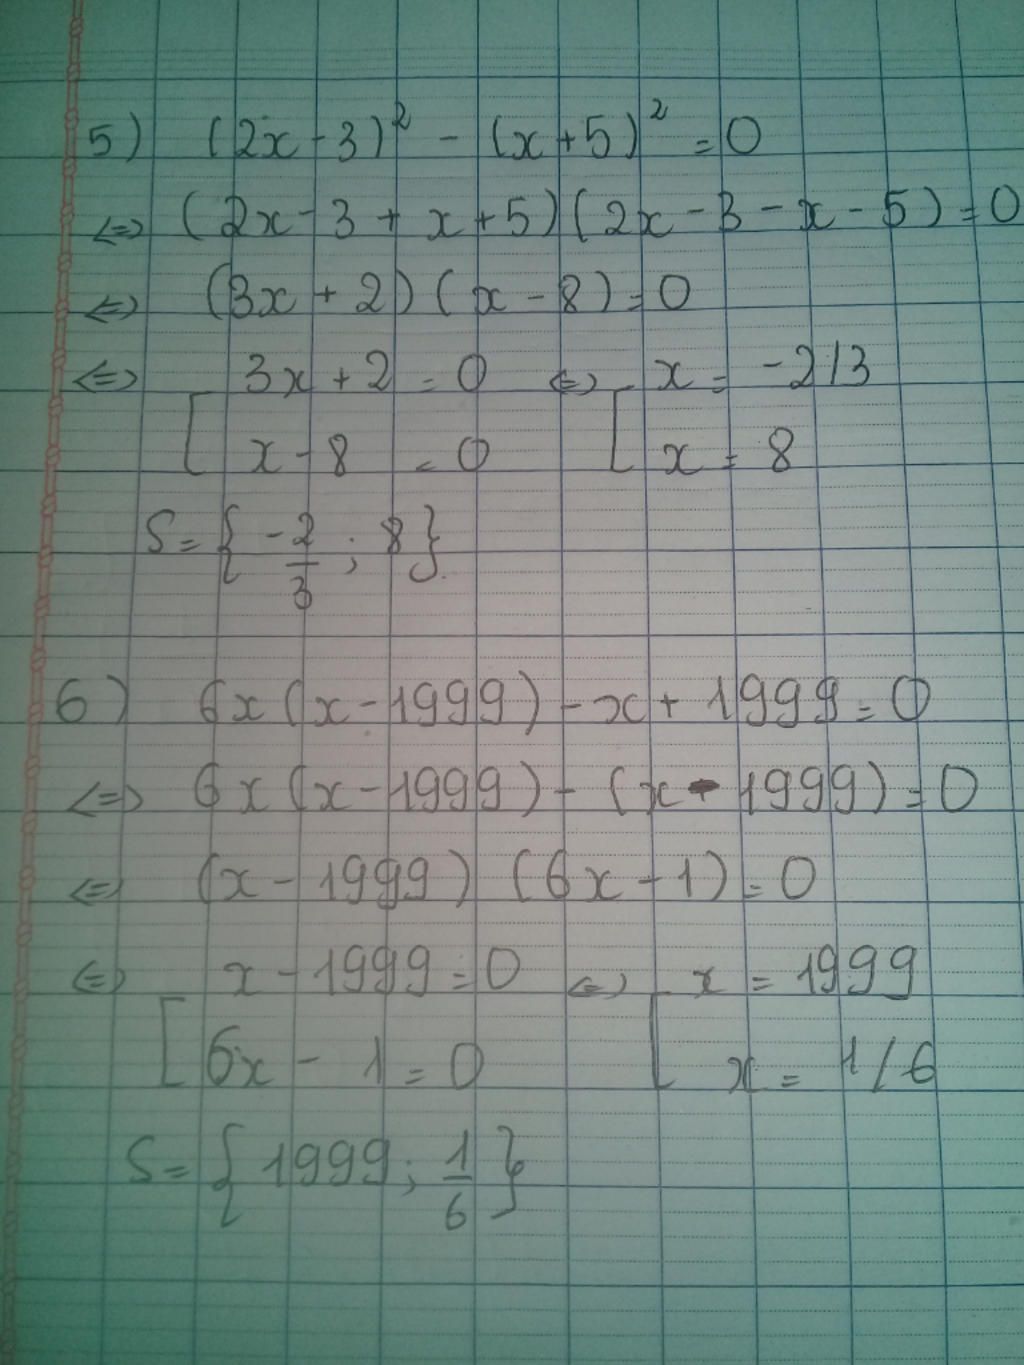 5) (2x - 3)² - (x+5)² = 0
<=> (2x - 3 + x + 5)(2x - 3 - x - 5) = 0
<=> (3x + 2)(x - 8) = 0
<=> [ 3x + 2 = 0 <=> [ x = -2/3
x - 8 = 0 x = 8
S = { -2/3 ; 8 }
6) 6x(x - 1999) - x + 1999 = 0
<=> 6x(x - 1999) - (x - 1999) = 0
<=> (x - 1999)(6x - 1) = 0
<=> [ x - 1999 = 0 <=> [ x = 1999
6x - 1 = 0 x = 1/6
S = { 1999 ; 1/6 }